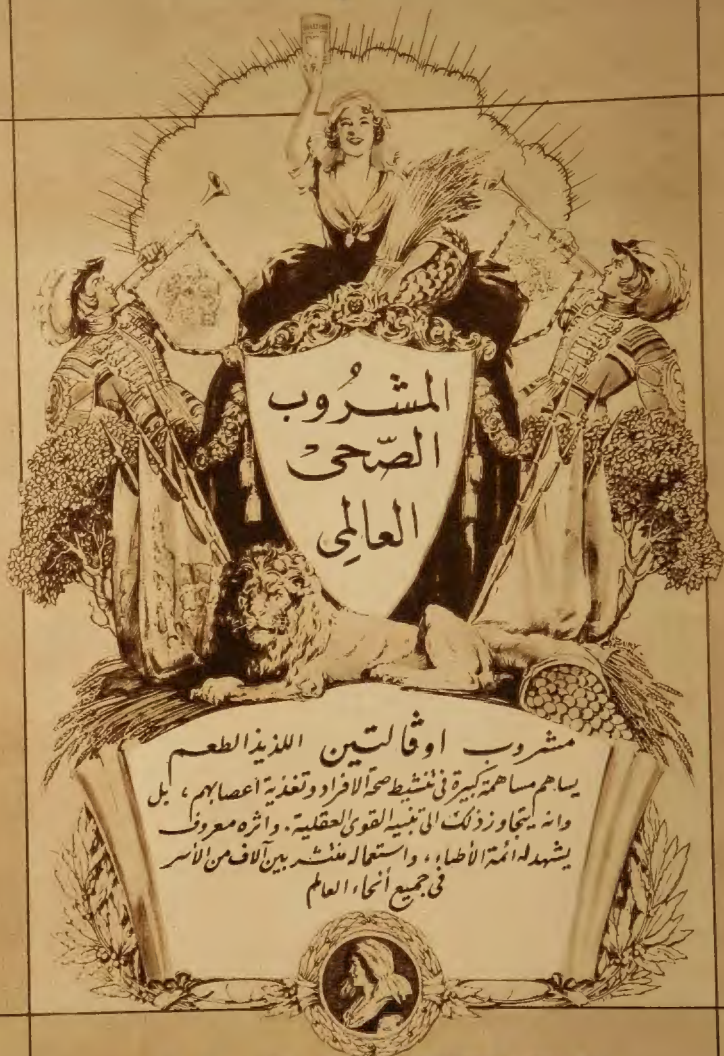 المشرُوب
الصّحى
العالمِى
مشروب اوڤالتين اللذيذ الطعم
يساهم مساهمة كبيرة فى تنشيط صحة الافراد وتغذية اعصابهم ، بل
وانه يتجاوز ذلك الى تنبيه القوى العقلية . واثره معروف
يشهد له ائمة الأطباء ، واستعماله منتشر بين آلاف من الأسر
فى جميع أنحاء العالم